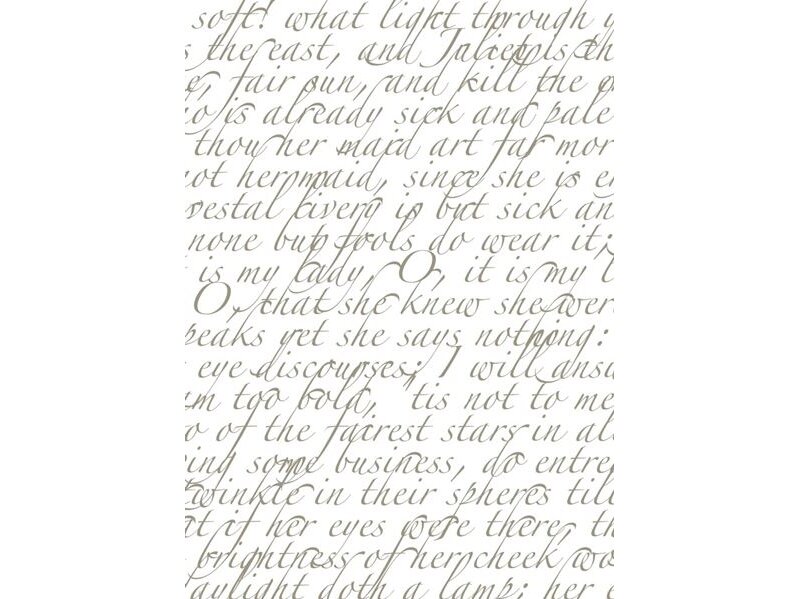 soft! what light through y
s the east, and Juliet is th
e, fair sun, and kill the e
o is already sick and pale
thou her maid art far mor
not her maid, since she is en
vestal livery is but sick an
none but fools do wear it;
is my lady, O, it is my l
O, that she knew she were
peaks yet she says nothing:
eye discourses; I will answ
am too bold, 'tis not to me
o of the fairest stars in all
ing some business, do entre
twinkle in their spheres till
at if her eyes were there, th
brightness of her cheek wo
aylight doth a lamp; her e